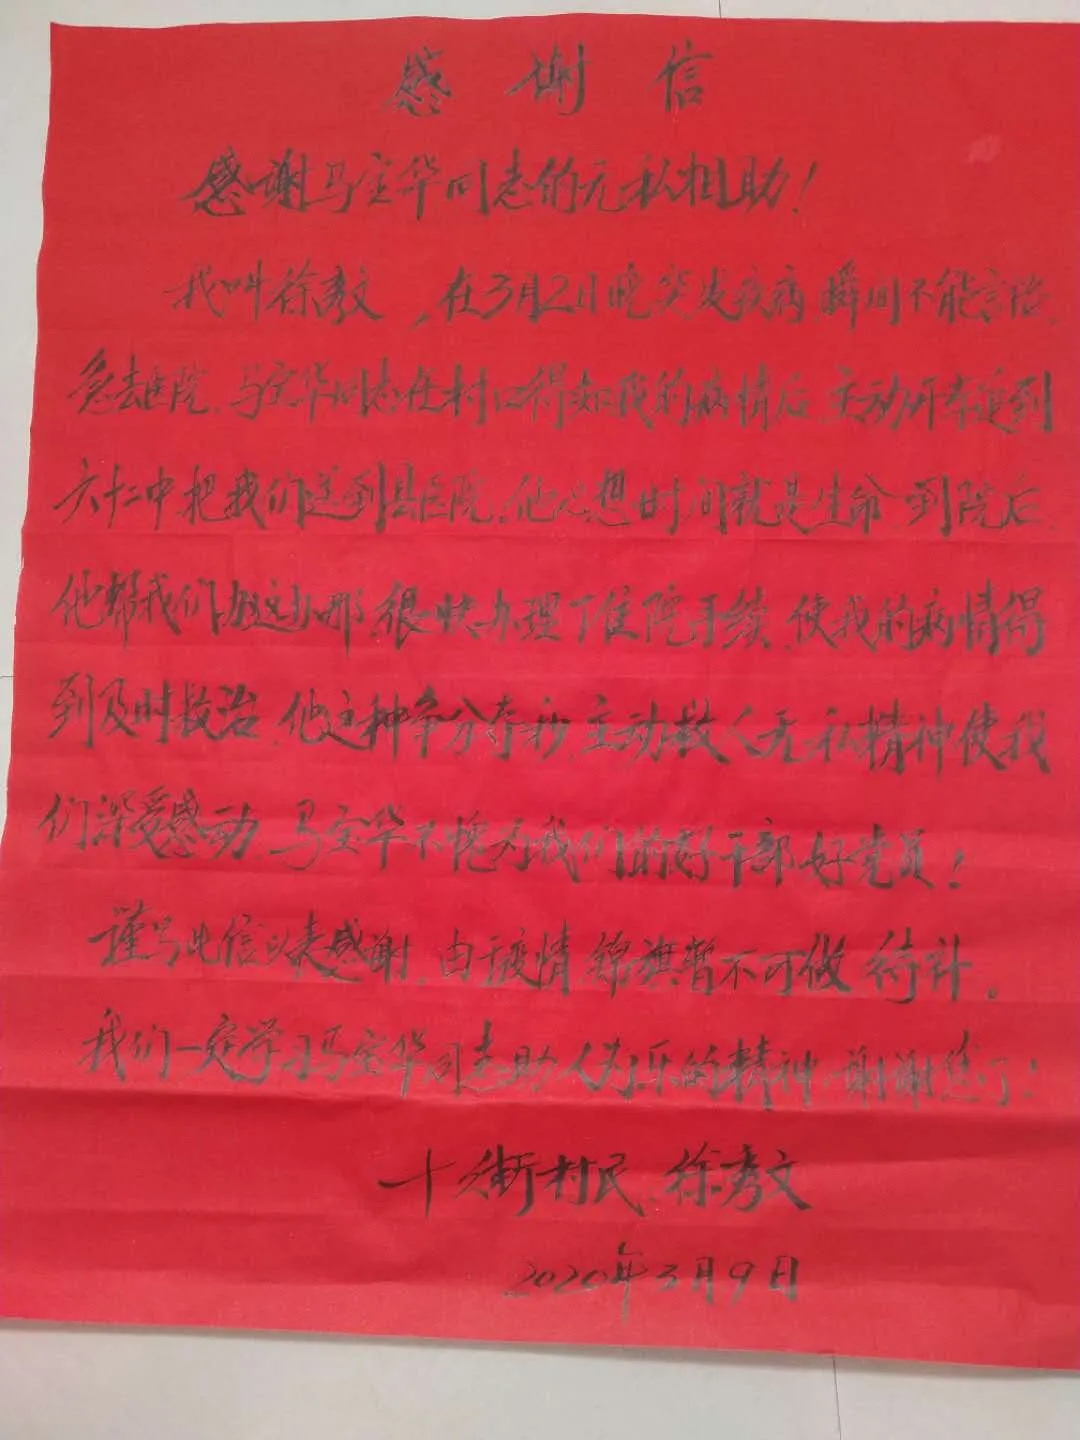 感谢信
感谢马宝华同志的无私相助！
我叫徐秀文，在3月2日晚突发疾病瞬间不能言语，
急去医院，马宝华同志在村口得知我的病情后，主动开车追到
六十二中把我们送到县医院，他心想时间就是生命到院后
他帮我们办这办那，很快办理了住院手续，使我的病情得
到及时救治，他这种争分夺秒，主动救人无私精神使我
们深受感动，马宝华不愧为我们的好干部好党员！
谨写此信以表感谢，由于疫情锦旗暂不可做待计。
我们一定学习马宝华同志助人为乐的精神，谢谢您了！
十街村民，徐秀文
2020年3月9日